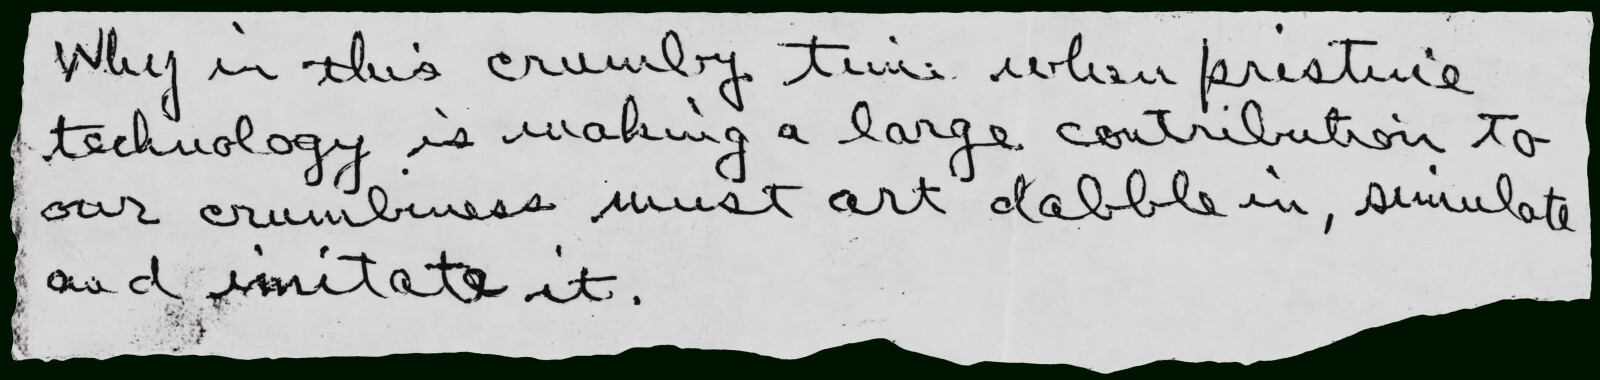 Why in this crumby time when pristine
technology is making a large contribution to
our crumbiness must art dabble in, simulate
and imitate it.